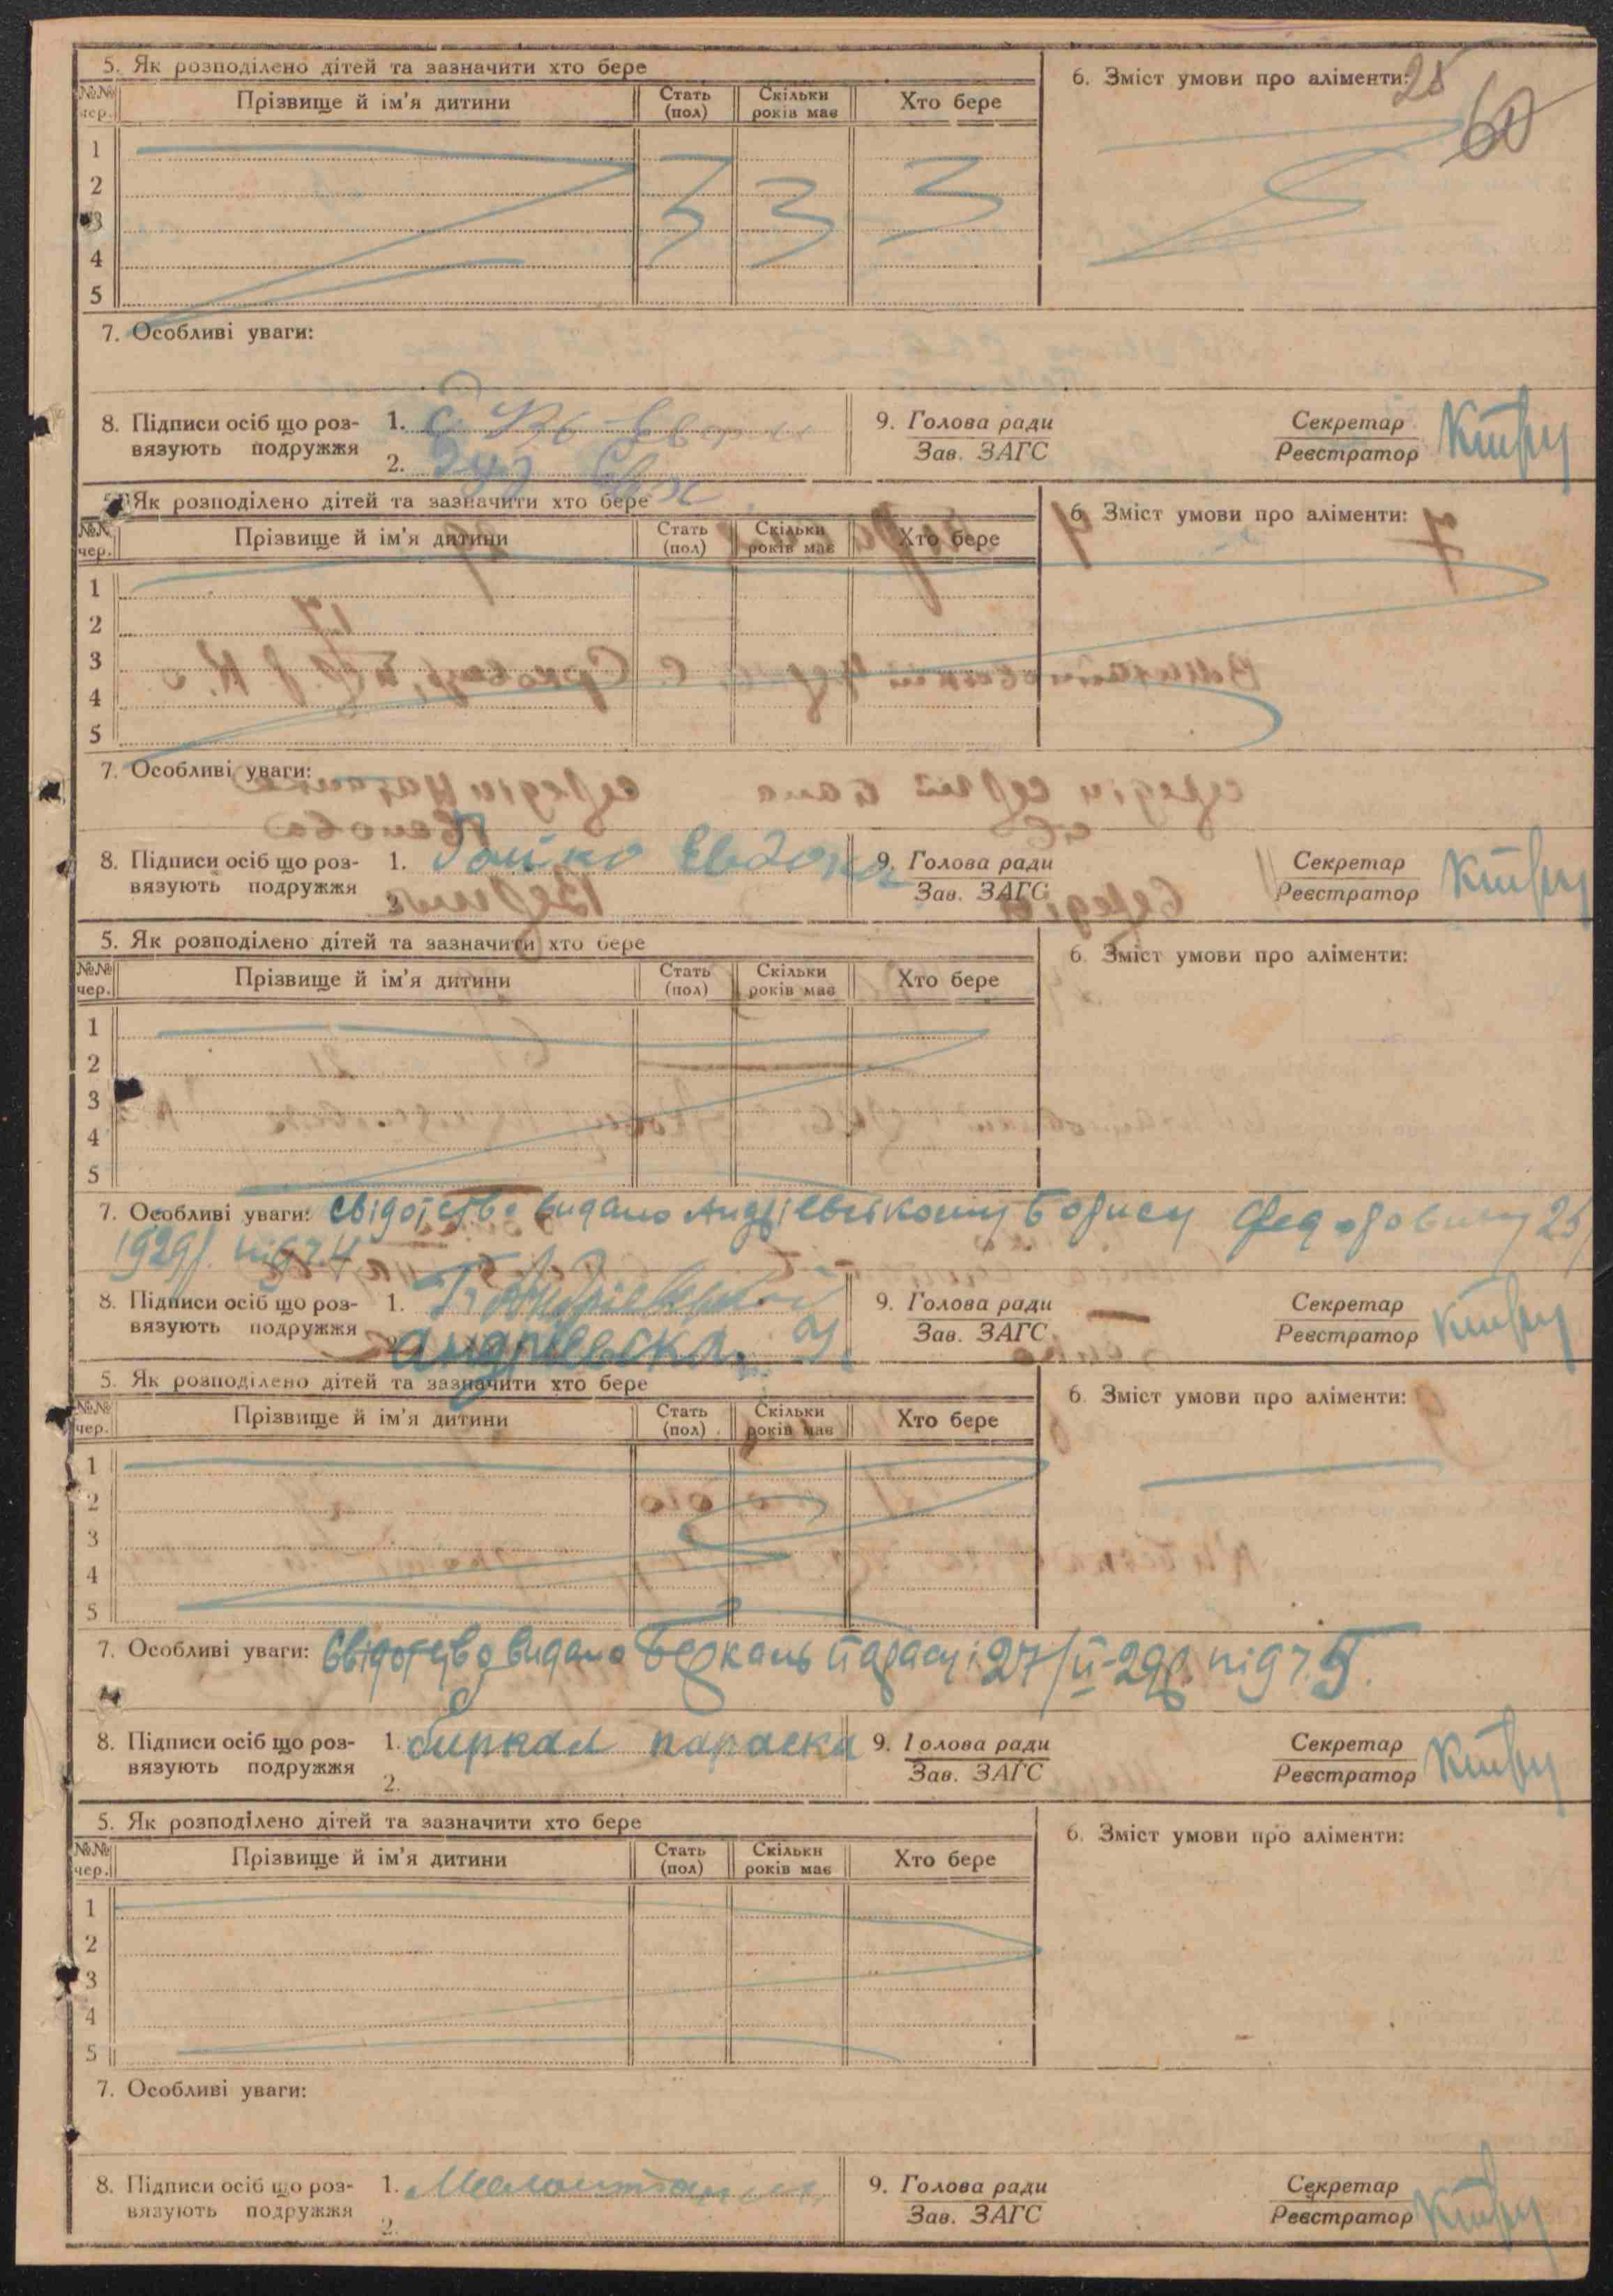 5. Як розподілено дітей та зазначити хто бере
6. Зміст умови про аліменти:
28
60
№№ чер. Прізвище й ім'я дитини Стать (пол) Скільки років має Хто бере
1
2
3
4
5
7. Особливі уваги:
8. Підписи осіб що роз-вязують подружжя 1.
2.
9. Голова ради
Зав. ЗАГС
Секретар
Реєстратор
5. Як розподілено дітей та зазначити хто бере
6. Зміст умови про аліменти:
№№ чер. Прізвище й ім'я дитини Стать (пол) Скільки років має Хто бере
1
2
3
4
5
7. Особливі уваги:
8. Підписи осіб що роз-вязують подружжя 1. Гойко Евдокя
2.
9. Голова ради
Зав. ЗАГС
Секретар
Реєстратор
5. Як розподілено дітей та зазначити хто бере
6. Зміст умови про аліменти:
№№ чер. Прізвище й ім'я дитини Стать (пол) Скільки років має Хто бере
1
2
3
4
5
7. Особливі уваги: Свідотство видано Андрієвському Борису Федоровичу 25/
1929р. під ч. 4
8. Підписи осіб що роз-вязують подружжя 1. Б. Андриевский
2. Андрієвска.
9. Голова ради
Зав. ЗАГС
Секретар
Реєстратор
5. Як розподілено дітей та зазначити хто бере
6. Зміст умови про аліменти:
№№ чер. Прізвище й ім'я дитини Стать (пол) Скільки років має Хто бере
1
2
3
4
5
7. Особливі уваги: Свідотство видано Беркань Парасці 27/II-29р. під ч. 5.
8. Підписи осіб що роз-вязують подружжя 1. биркал параска
2.
9. Голова ради
Зав. ЗАГС
Секретар
Реєстратор
5. Як розподілено дітей та зазначити хто бере
6. Зміст умови про аліменти:
№№ чер. Прізвище й ім'я дитини Стать (пол) Скільки років має Хто бере
1
2
3
4
5
7. Особливі уваги:
8. Підписи осіб що роз-вязують подружжя 1.
2.
9. Голова ради
Зав. ЗАГС
Секретар
Реєстратор